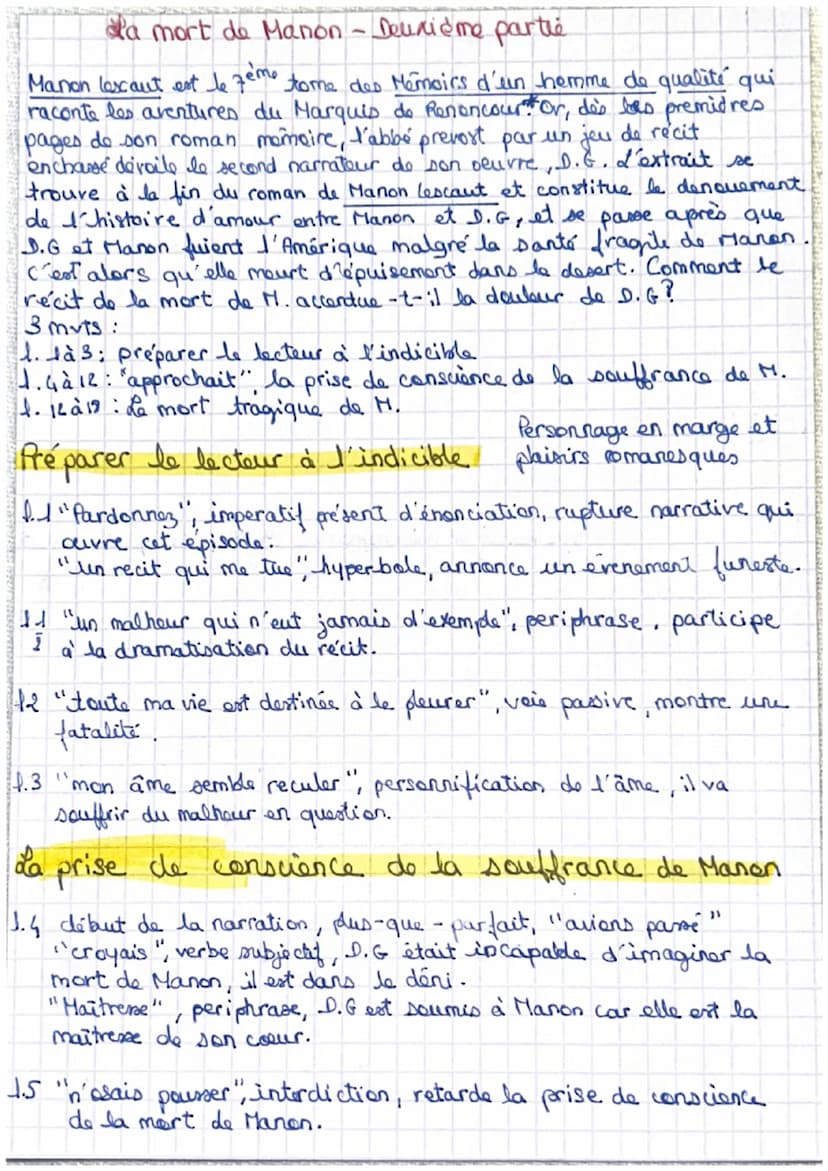 La mort de Manon - Deuxième partie
Manon lescaut est le 7ème tome des Mémoirs d'un homme de qualité qui
raconte les aventures du Marquis de Renoncour. Or, dès les premières
pages de son roman mémoire, l'abbé prevost par un jeu de récit
enchassé dévoile le second narrateur de son oeuvre, D.G. L'extrait se
trouve à la fin du roman de Manon lescaut et constitue le denouement
de l'histoire d'amour entre Manon et D.G, et se passe après que
D.G et Manon fuient l'Amérique malgré la santé fragile de Manon.
C'est alors qu'elle meurt d'épuisement dans le desert. Comment le
récit de la mort de M. accentue-t-il la douleur de D.G?
3 mvts :
l. 1à3 : préparer le lecteur à l'indicible
l. 4à12 : "approchait" la prise de conscience de la souffrance de M.
l. 12à19 : La mort tragique de M.
Personnage en marge et
Préparer le lecteur à l'indicible plaisirs romanesques
l.1 "Pardonnez", imperatif présent d'énonciation, rupture narrative qui
ouvre cet épisode.
"un recit qui me tue", hyperbole, annonce un évenement funeste.
l.1 "un malheur qui n'eut jamais d'exemple", periphrase, participe
2 à la dramatisation du récit.
l.2 "toute ma vie est destinée à le pleurer", voie passive, montre une
fatalité.
l.3 "mon âme semble reculer", personnification de l'âme, il va
souffrir du malheur en question.
La prise de conscience de la souffrance de Manon
l.4 début de la narration, plus-que-parfait, "avions passé"
"croyais", verbe subjectif, D.G était incapable d'imaginer la
mort de Manon, il est dans le déni.
"Maîtresse", periphrase, D.G est soumis à Manon car elle est la
maîtresse de son coeur.
l.5 "n'osais pousser", interdiction, retarde la prise de conscience
de la mort de Manon.